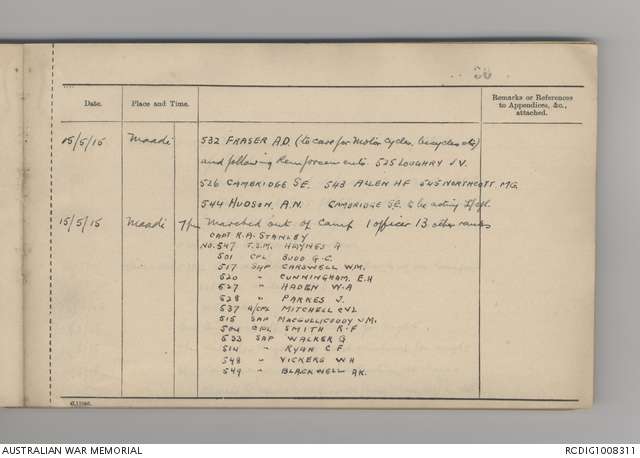 30
Date.
Place and Time.
Remarks or References
to Appendices, &c.,
attached.
15/5/15 Maadi 532 FRASER A.D. (to care for Motor Cycles, bicycles etc)
and following Reinforcements. 525 LOUGHRY J.V.
526 CAMBRIDGE S.E. 543 ALLEN HF 545 NORTHCOTT. M.G.
544 HUDSON. A.N. CAMBRIDGE S.E. to be acting
15/5/15 Maadi 7pm Marched out of Camp 1 officer 13 other ranks
CAPT R.A. STANLEY
NO. 547 T.S.M. HAYNES G
501 CPL BUDD G.C.
517 SAP CARDWELL W.M.
520 " CUNNINGHAM. E.H
527 " HADEN W.A
528 " PARKES J.
537 A/CPL MITCHELL CVL
515 SAP MACGULLICODDY J M.
504 CPL SMITH R.F
533 SAP WALKER G
514 " RYAN C F
548 " VICKERS W H
549 " BLACKWELL A.K.
AUSTRALIAN WAR MEMORIAL
RCDIG1008311